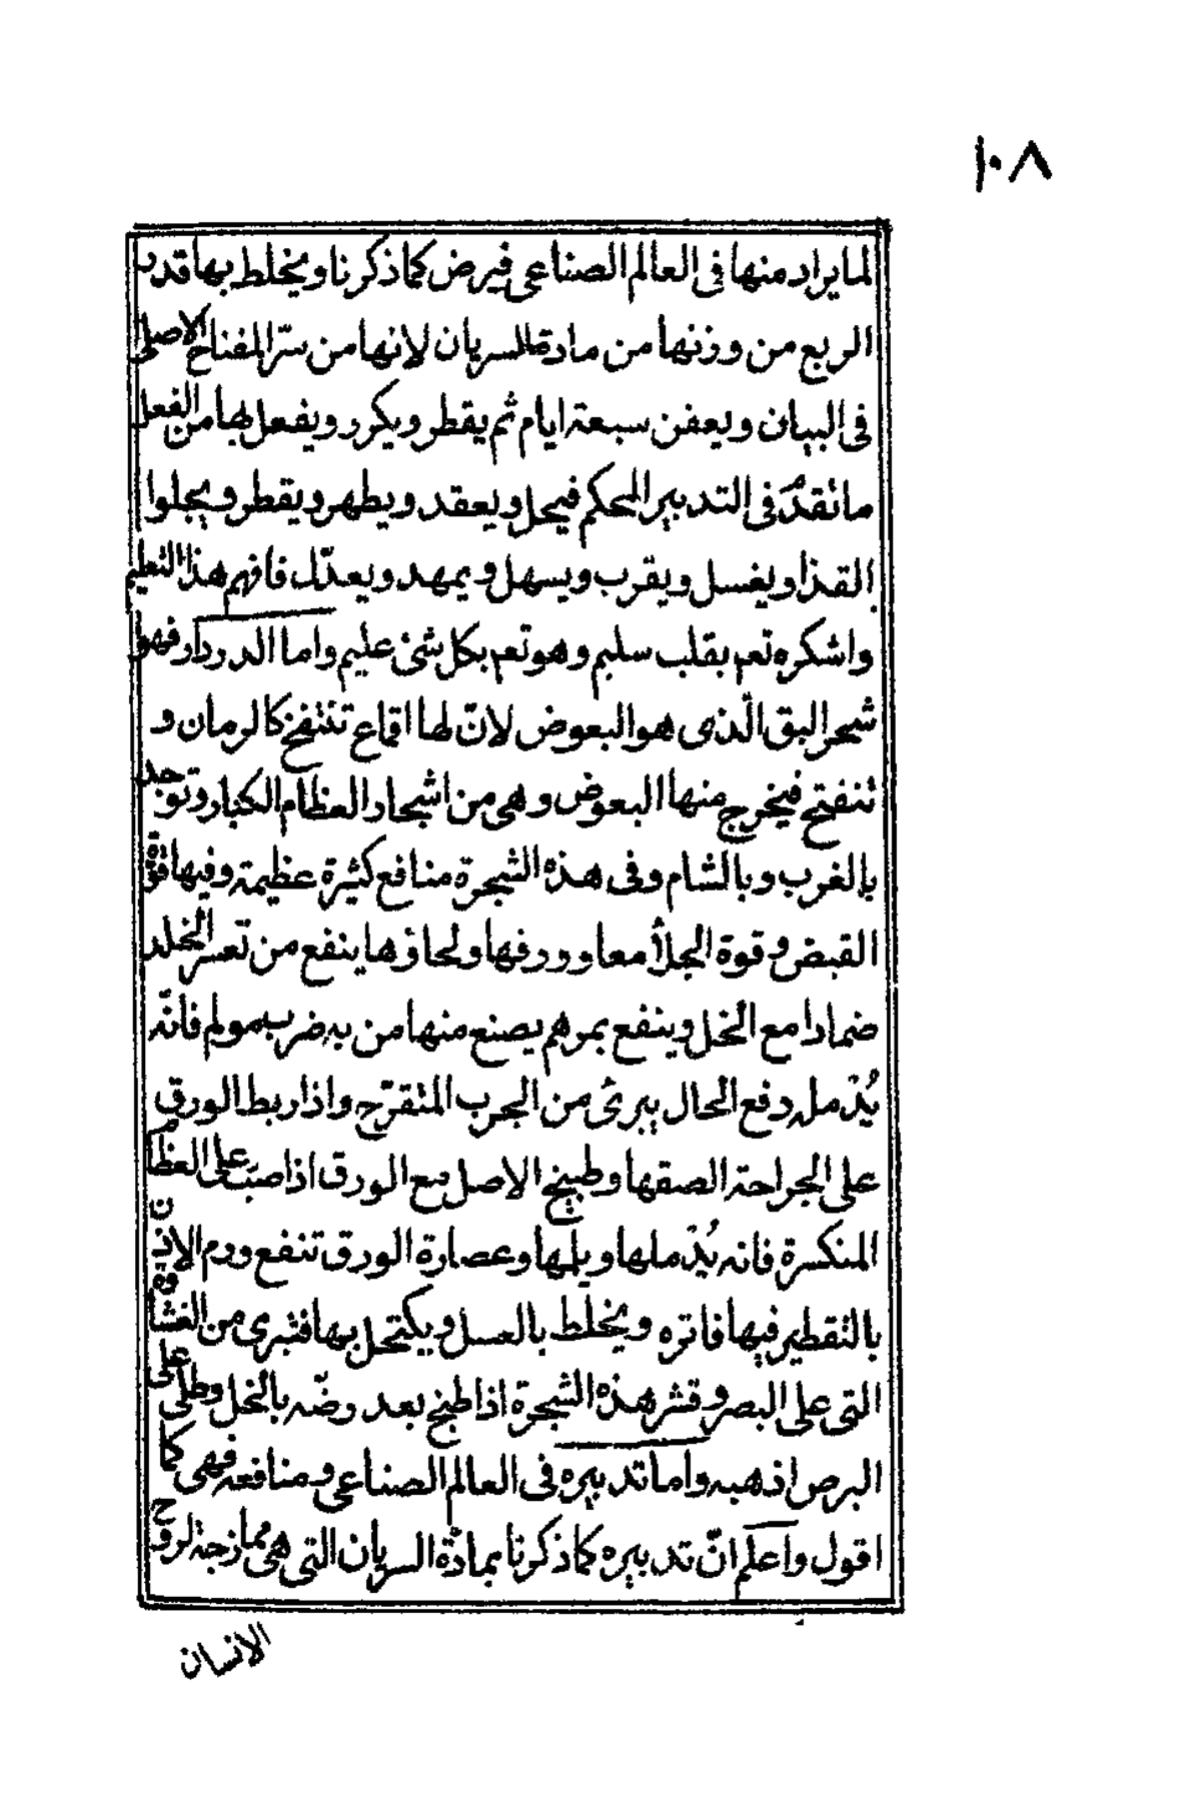 ١٠٨
لما يراد منها فى العالم الصناعى فيرض كما ذكرنا ويخلط بها قدر
الربع من وزنها من مادة السريان لانها من سرّ المفتاح الاصلى
فى البيان ويعفن سبعة ايام ثم يقطر ويكرر ويفعل بها من الفعل
ما تقدّم فى التدبير المحكم فيحل ويعقد ويطهر ويقطر ويجلوا
القذا ويغسل ويقرب ويسهل ويمهد ويعدّل فافهم هذا التعليم
واشكره تعم بقلب سليم وهو تعم بكل شئ عليم واما الدردار فهو
شجر البق الّذى هو البعوض لانّ لها اقماع تنتفخ كالرمان و
تنفتح فيخرج منها البعوض وهى من اشجار العظام الكبار وتوجد
بالغرب وبالشام وفى هذه الشجرة منافع كثيرة عظيمة وفيها قوّة
القبض وقوة الجلأ معا وورقها ولحاؤها ينفع من تعسر الجلد
ضمادا مع الخل وينفع بمرهم يصنع منها من به ضرب مولم فانّه
يُدْمله دفع الحال يبرئ من الجرب المتقرّح واذا ربط الورق
على الجراحة الصقها وطبيخ الاصل مع الورق اذا صبّ على العظام
المنكسرة فانه يُدْملها ويلمها وعصارة الورق تنفع ورم الاذن
بالتقطير فيها فاتره ويخلط بالعسل ويكتحل بها فتبرى من الغشاوة
التى على البصر وقشر هذه الشجرة اذا طبخ بعد رضّه بالخل وطلى على
البرص اذهبه واما تدبيره فى العالم الصناعى ومنافعه فهى كما
اقول واعلم انّ تدبيره كما ذكرنا بمادّة السريان التى هى ممازجة لروح
الانسان